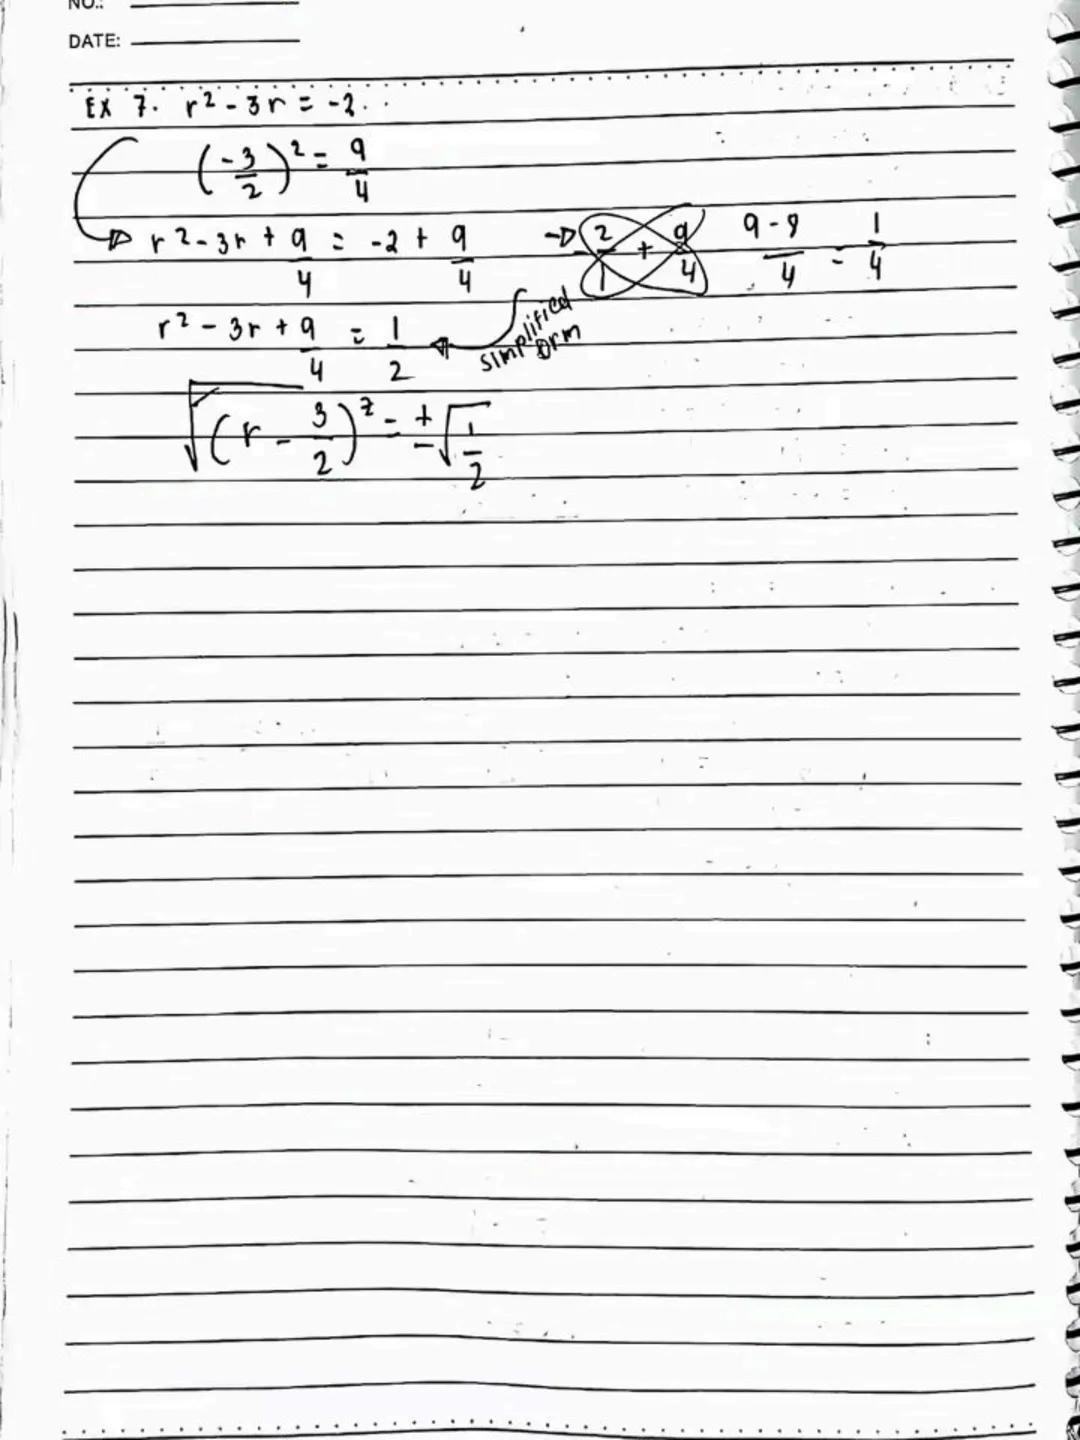 NO.:
DATE:
EX 7. r² - 3r = -2
(-3/2)² = 9/4
r² - 3r + 9/4 = -2 + 9/4 → -2/1 + 9/4 9-8/4 = 1/4
r² - 3r + 9/4 = 1/2 simplified form
√(r - 3/2)² = ±√1/2